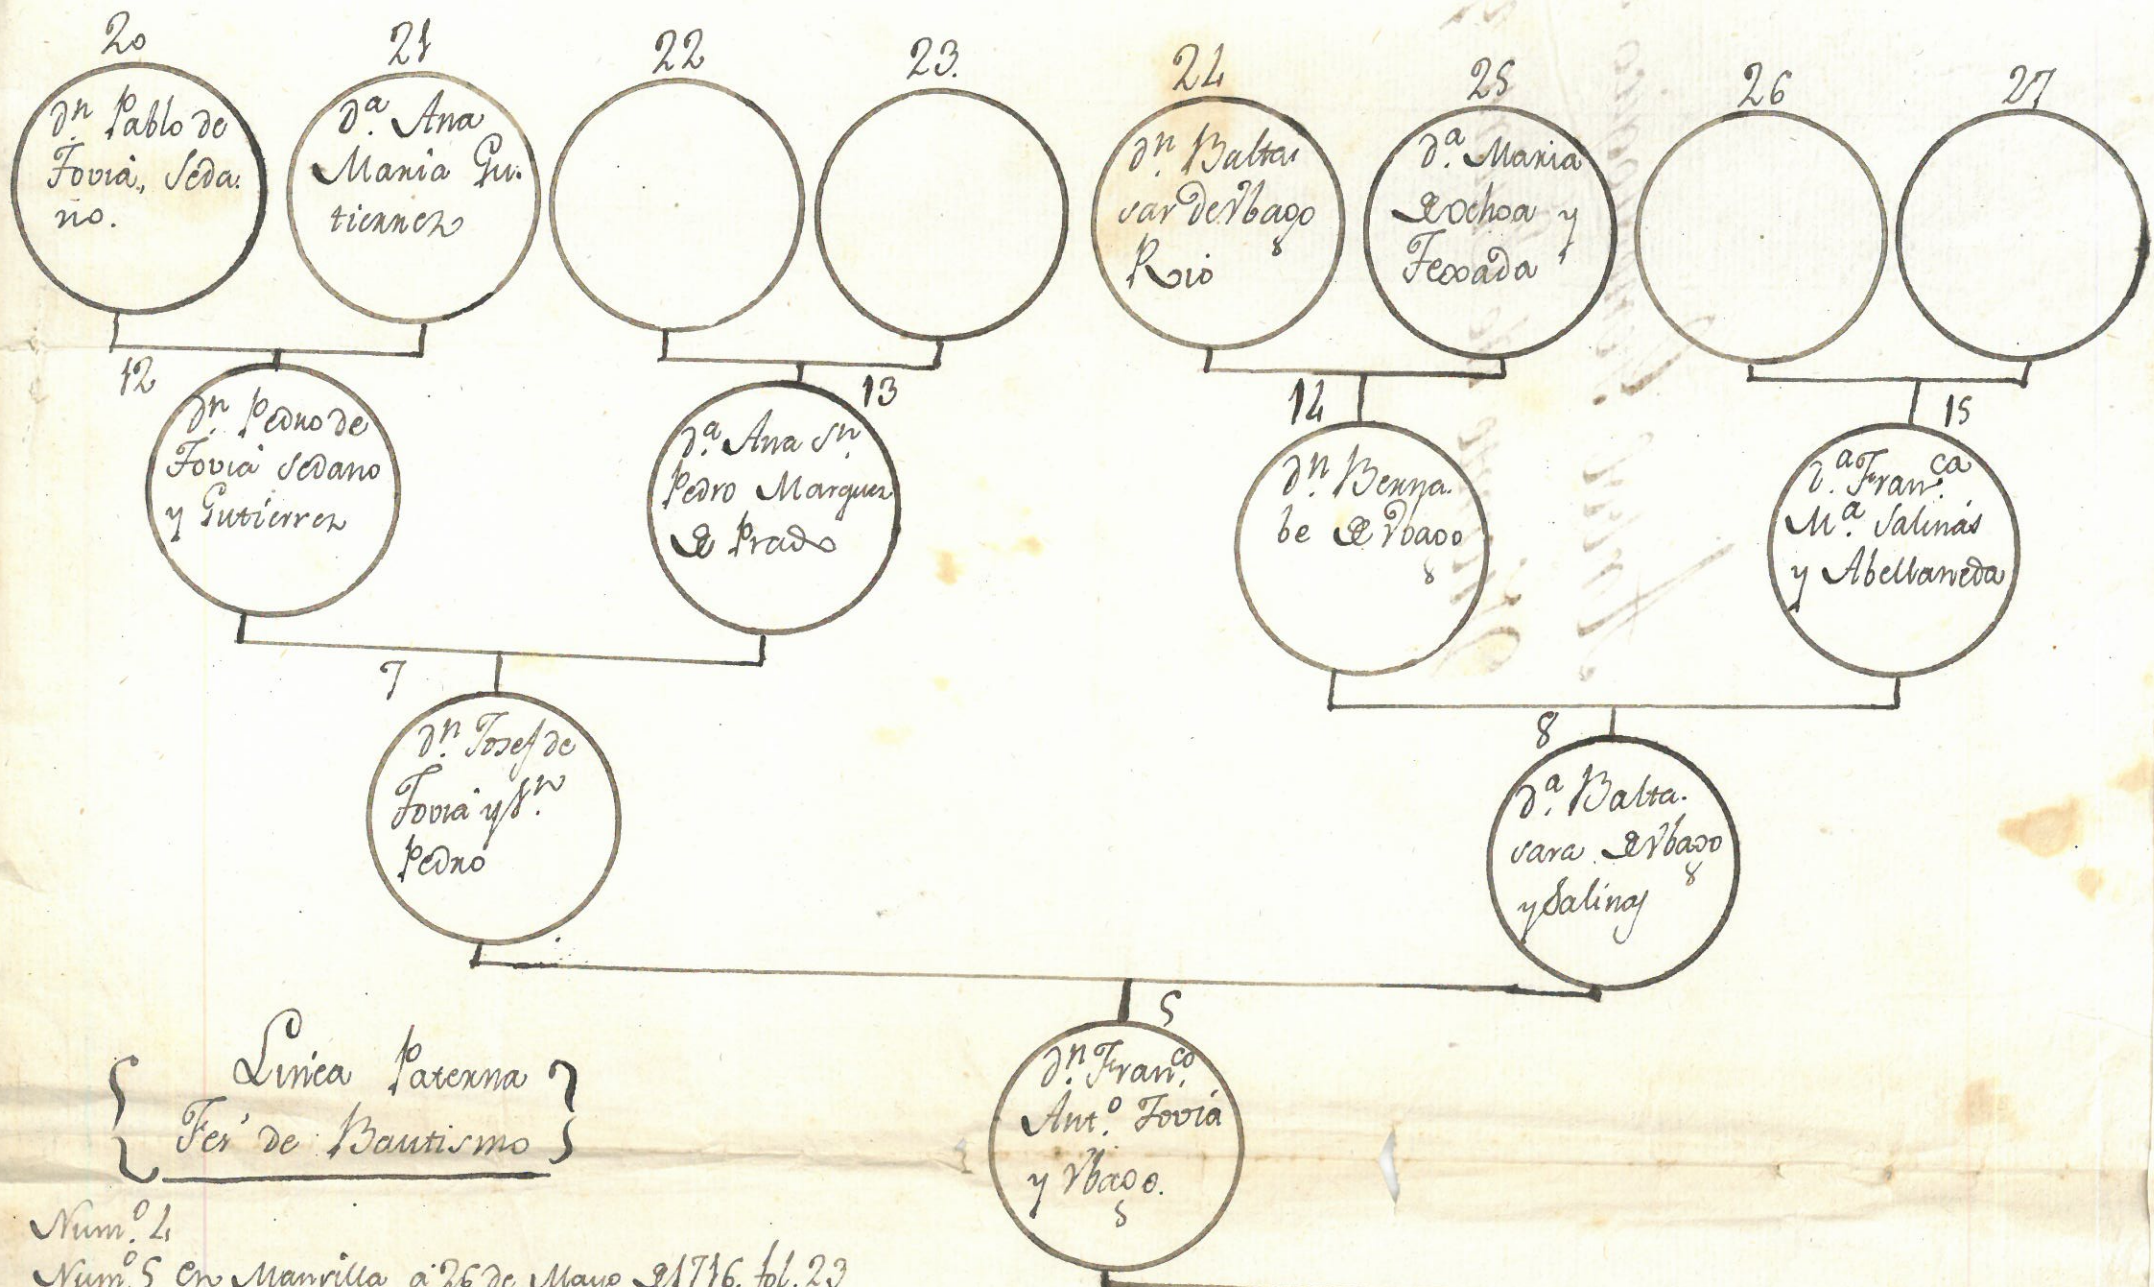 20
dn. Pablo de
Tovia, Seda.
no.
21
da. Ana
Maria Gu.
tierrez
22
23.
24
dn. Balta.
sar de Vbago
Rio
25
da. Maria
de Ochoa y
Texada
26
27
12
dn. Pedro de
Tovia Sedano
y Gutierrez
13
da. Ana Sn.
Pedro Marquez
de Prado
14
dn. Berna.
be de Vbago
15
da. Franca.
Ma. Salinas
y Abellaneda
7
dn. Josef de
Tovia y Sn.
Pedro
8
da. Balta.
sara de Vbago
y Salinas
5
dn. Franco.
Anto. Tovia
y Vbago.
Linea Paterna
Feé de Bautismo
Numo. 4
Numo. 5 en Manrilla a 26 de Mayo de 1716. fol. 23